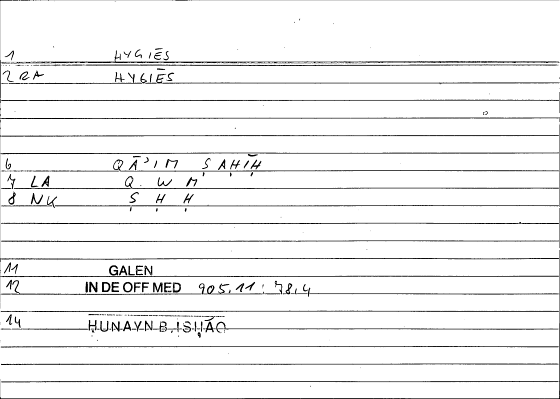 1 HYGIĒS
2 RA HYGIĒS
6 QĀʾIM ṢAḤĪḤ
7 LA Q W M
8 NK Ṣ Ḥ Ḥ
11 GALEN
12 IN DE OFF MED 905,11 : 78,4
14 ḤUNAYN B. ISḤĀQ